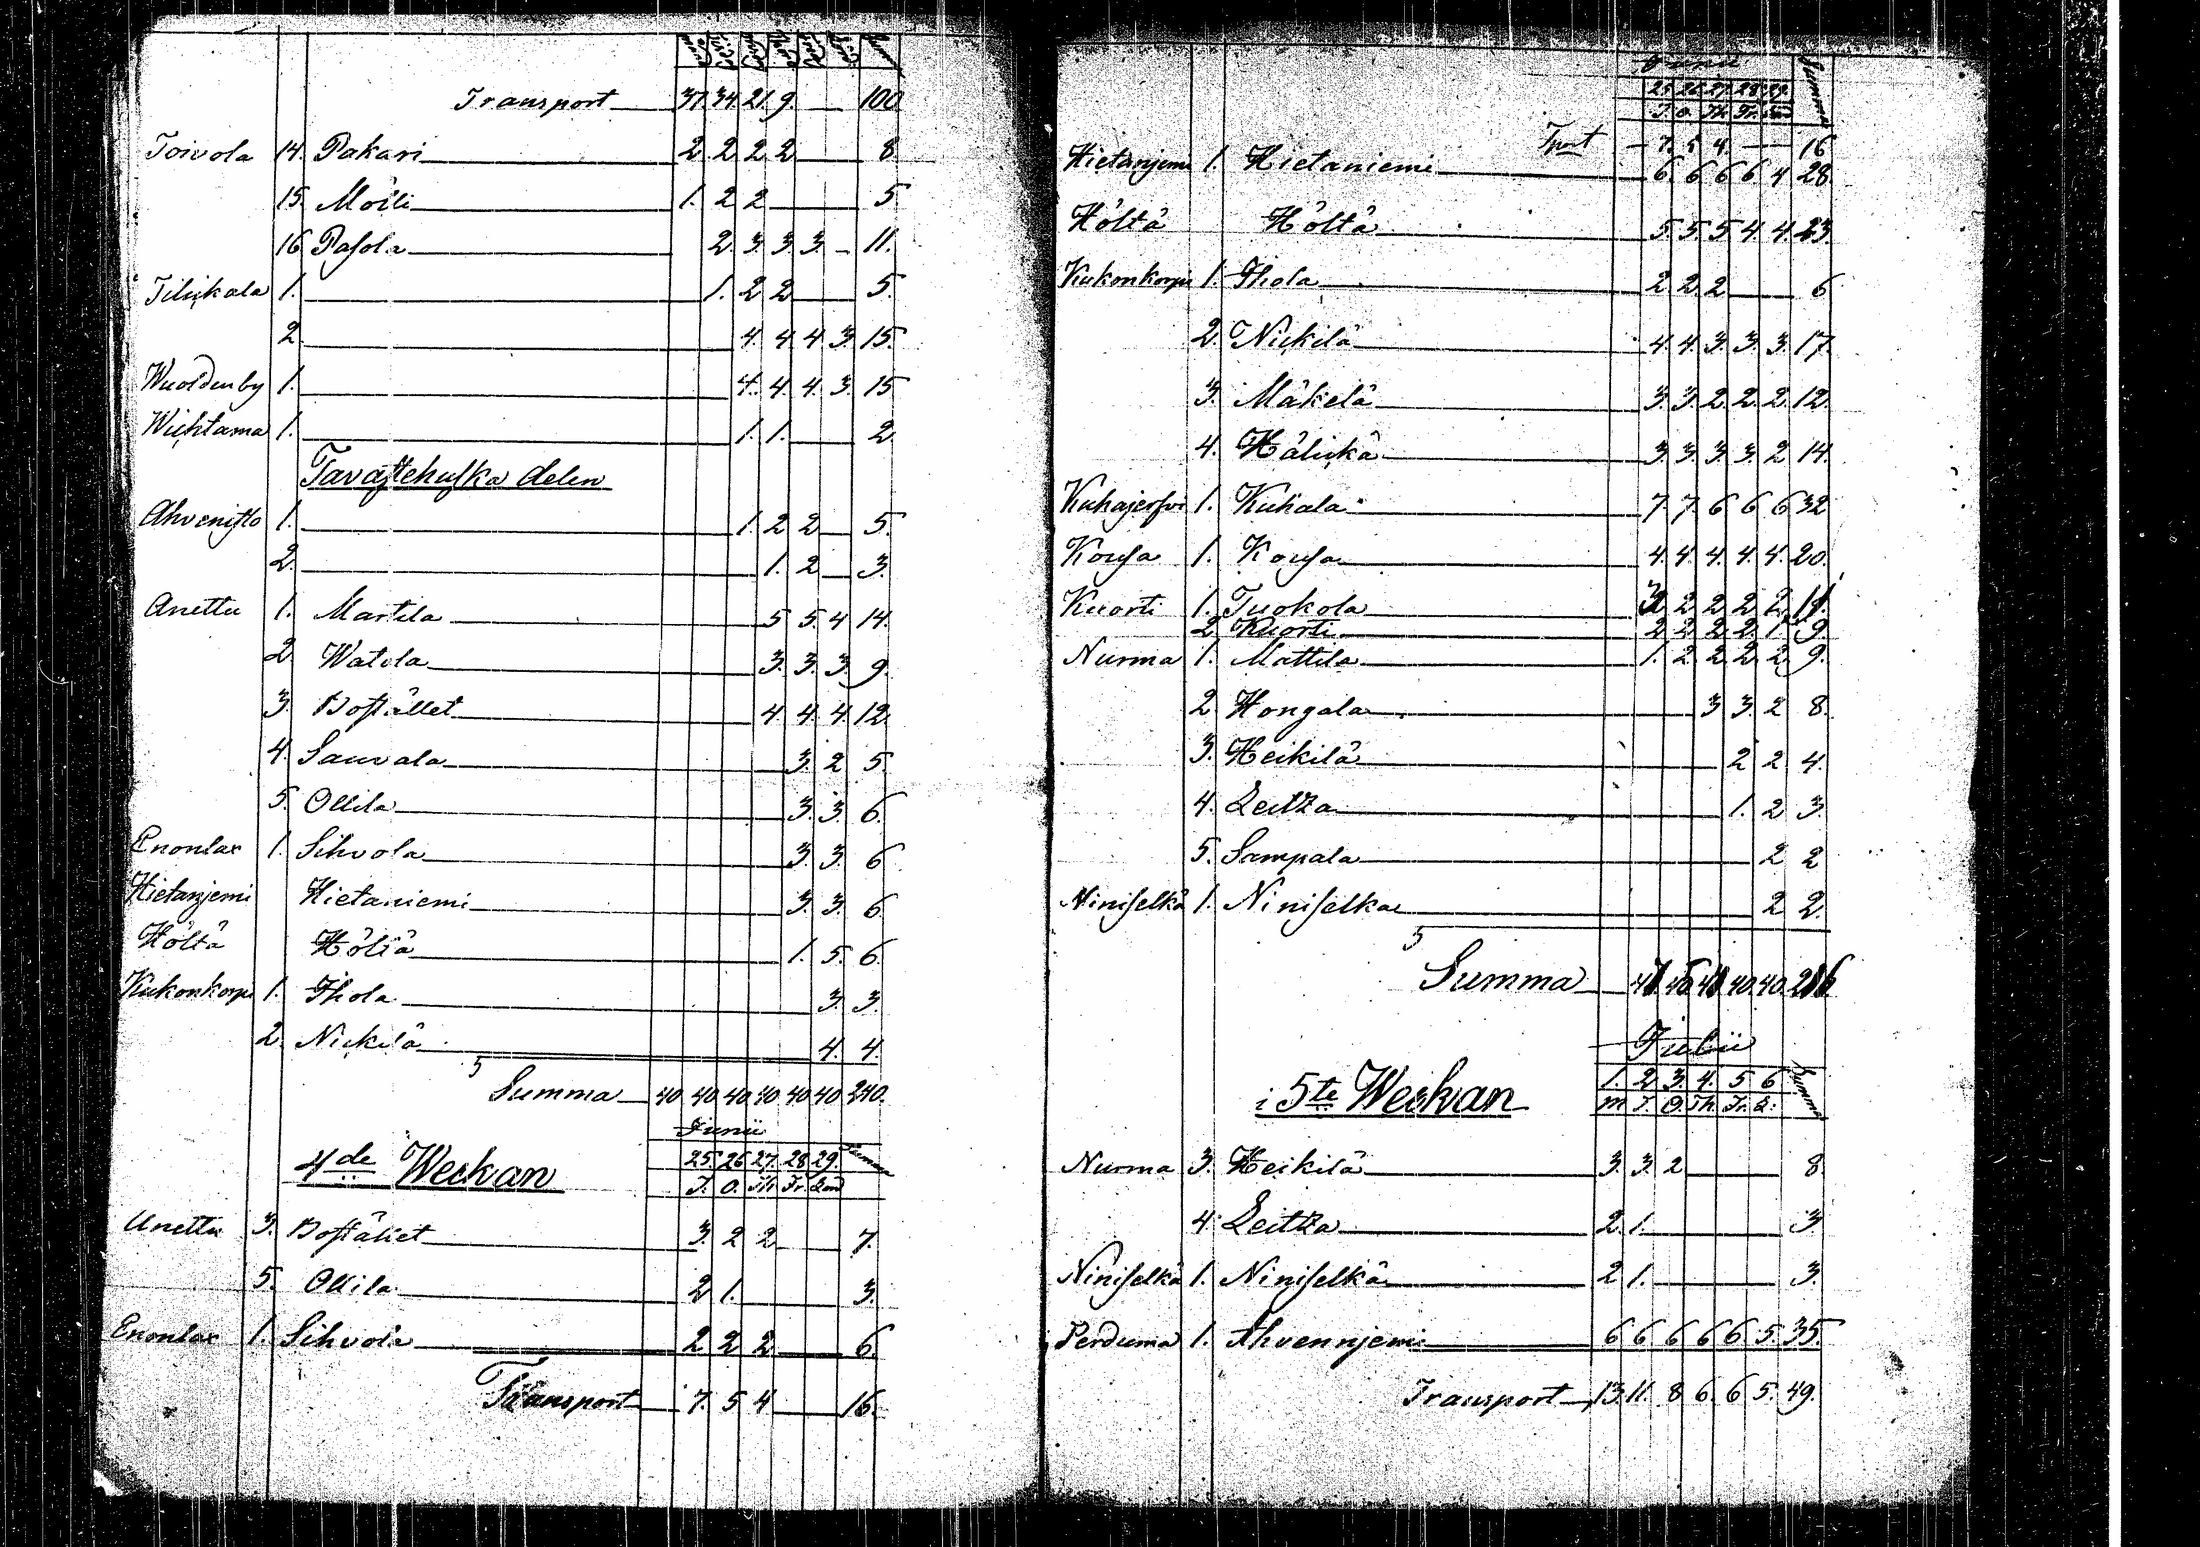 Transport 37. 34. 21. 9. 100
Toivola 14. Pakari 2. 2. 2. 2 8
15. Möili 1. 2 2 5
16. Pasola 2. 3. 3. 3. 11.
Tilickala 1. 1. 2 2 5.
2. 4. 4. 4 3. 15.
Wuoldenby 1. 4. 4. 4. 3. 15
Wichtama 1. 1. 1. 2
Tavastehuska delen
Ahvenisto 1. 1. 2 2 5.
2. 1. 2 3.
Anettu 1. Martila 5 5. 4 14.
2 Watola 3. 3. 3. 9.
3 Bostället 4 4. 4. 12.
4. Sauvala 3. 2 5.
5. Ollila 3. 3. 6.
Enonlax 1. Sihvola 3. 3. 6
Hietanjemi Hietaniemi 3. 3. 6.
Höltä Höltä 1. 5. 6.
Kukonkorpi 1. Ihola 3. 3.
2. Nickilä 4. 4.
Summa 40 40. 40. 40. 40. 40. 240.
Junii
4de Weckan 25. 26 27. 28 29. Summa
T. O. Th Fr. Lörd
Anettu 3. Bostället 3. 2 2 7.
5. Ollila 2 1. 3.
Enonlax 1. Sihvola 2 2 2 6.
Transport 7. 5 4 16.
Junii Summa
25 26 27. 28 29.
T. O. Th. Fr. Lörd
Tport 7. 5 4. 16
Hietanjemi 1. Hietaniemi 6. 6 6 6. 4 28.
Höltä Höltä 5. 5. 5 4. 4. 23.
Kukonkorpi 1. Ihola 2 2. 2 6
2. Nickilä 4. 4. 3. 3. 3. 17.
3. Mäkelä 3. 3. 2. 2. 2. 12.
4. Hälickä 3. 3. 3. 3. 2 14.
Kuhajerfvi 1. Kuhala 7. 7. 6 6 6 32
Kousa 1. Kousa 4. 4. 4. 4. 4. 20.
Kuorti 1. Tuokola 3 2 2 2 2 11.
2 Kuorti 2 2. 2. 2. 1. 9.
Nurma 1. Mattila 1. 2. 2. 2. 2 9.
2 Hongala 3 3. 2 8.
3. Heikilä 2 2 4.
4. Leitza 1. 2 3.
5. Sampala 2 2
Niniselkä 1. Niniselkä 2 2.
Summa 40. 40.
Julii
i 5te Weckan 1. 2. 3. 4. 5 6 Summa
M T. O. Th. Fr. L.
Nurma 3. Heikilä 3. 3. 2 8.
4. Leitza 2. 1. 3
Niniselkä 1. Niniselkä 2 1. 3.
Perduma 1. Ahvennjemi 6 6 6 6 6 5. 35.
Transport 13. 11. 8 6. 6 5. 49.